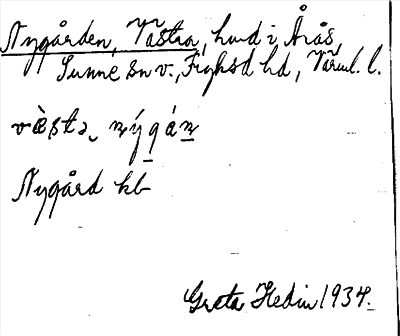 Nygården, Västra, hmd i Årås
Sunne sn v., Fryksd hd, Värml. l.
vɛ̀sta, nýgán
Nygård kb
Greta Hedin 1934.